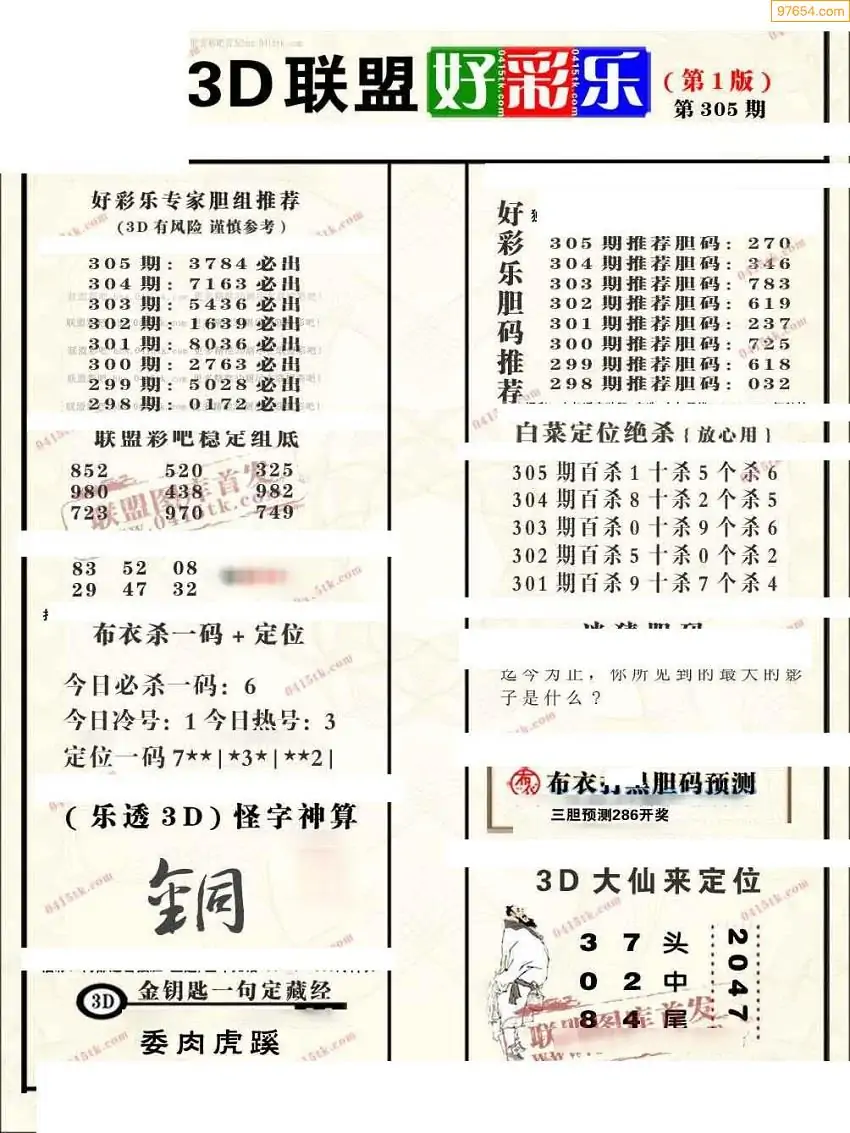 97654.com
3D联盟好彩乐(第1版)
第305期
好彩乐专家胆组推荐
(3D有风险 谨慎参考)
305期: 3784必出
304期: 7163必出
303期: 5436必出
302期: 1639必出
301期: 8036必出
300期: 2763必出
299期: 5028必出
298期: 0172必出
联盟彩吧稳定组底
852 520 325
980 438 982
723 970 749
83 52 08
29 47 32
布衣杀一码+定位
今日必杀一码: 6
今日冷号: 1 今日热号: 3
定位一码 7**|*3*|**2|
(乐透3D)怪字神算
銅
3D 金钥匙一句定藏经
委肉虎蹊
好彩乐胆码推荐
305期推荐胆码: 270
304期推荐胆码: 346
303期推荐胆码: 783
302期推荐胆码: 619
301期推荐胆码: 237
300期推荐胆码: 725
299期推荐胆码: 618
298期推荐胆码: 032
白菜定位绝杀{放心用}
305期百杀1十杀5个杀6
304期百杀8十杀2个杀5
303期百杀0十杀9个杀6
302期百杀5十杀0个杀2
301期百杀9十杀7个杀4
迄今为止，你所见到的最大的影
子是什么?
布衣 胆码预测
三胆预测286开奖
3D大仙来定位
3 7 头
0 2 中
8 4 尾
2047
联盟图库首发
www.0415tk.com
0415tk.com